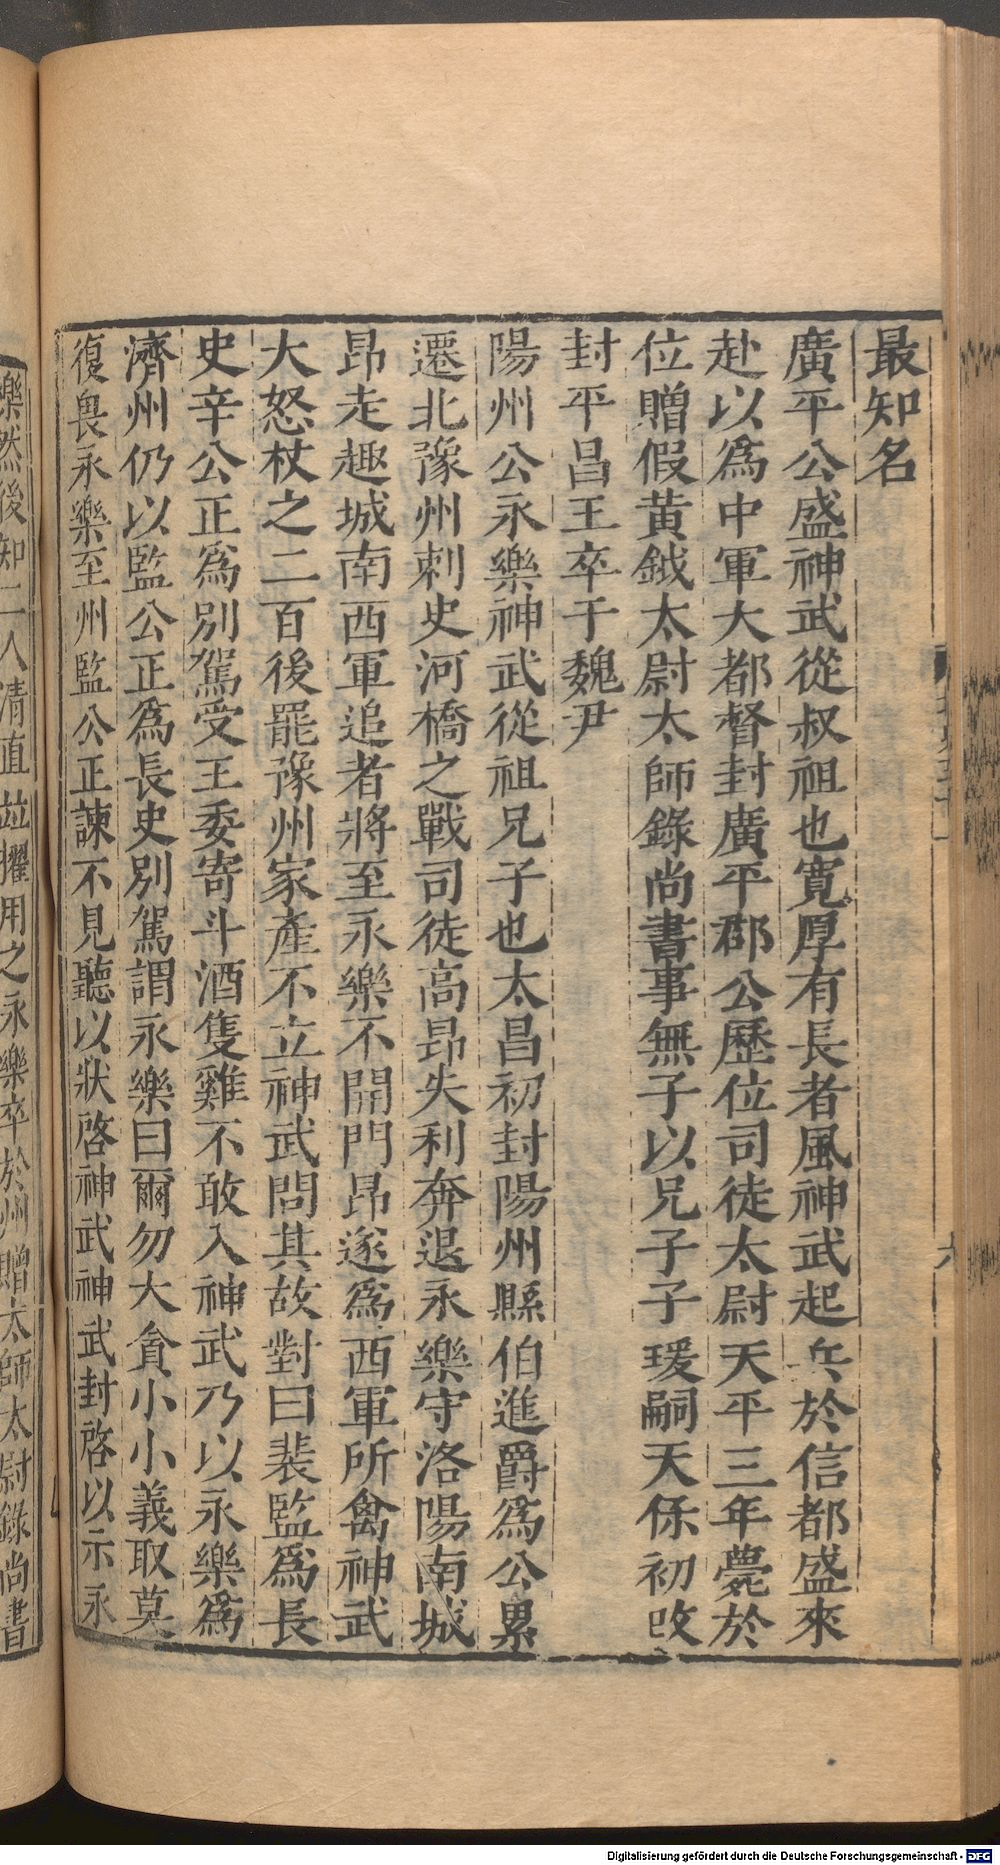 最知名
廣平公盛神武從叔祖也寬厚有長者風神武起兵於信都盛來
赴以爲中軍大都督封廣平郡公歷位司徒太尉天平三年薨於
位贈假黃鉞太尉太師錄尚書事無子以兄子子瑗嗣天保初改
封平昌王卒于魏尹
陽州公永樂神武從祖兄子也太昌初封陽州縣伯進爵爲公累
遷北豫州刺史河橋之戰司徒高昂失利奔退永樂守洛陽南城
昂走趣城南西軍追者將至永樂不開門昂遂爲西軍所禽神武
大怒杖之二百後罷豫州家產不立神武問其故對曰裴監爲長
史辛公正爲別駕受王委寄斗酒隻雞不敢入神武乃以永樂爲
濟州仍以監公正爲長史別駕謂永樂曰爾勿大貪小小義取莫
復畏永樂至州監公正諫不見聽以狀啓神武神武封啓以示永
樂然後知二人清直竝擢用之永樂卒於州贈太師太尉錄尚書
Digitalisierung gefördert durch die Deutsche Forschungsgemeinschaft - DFG